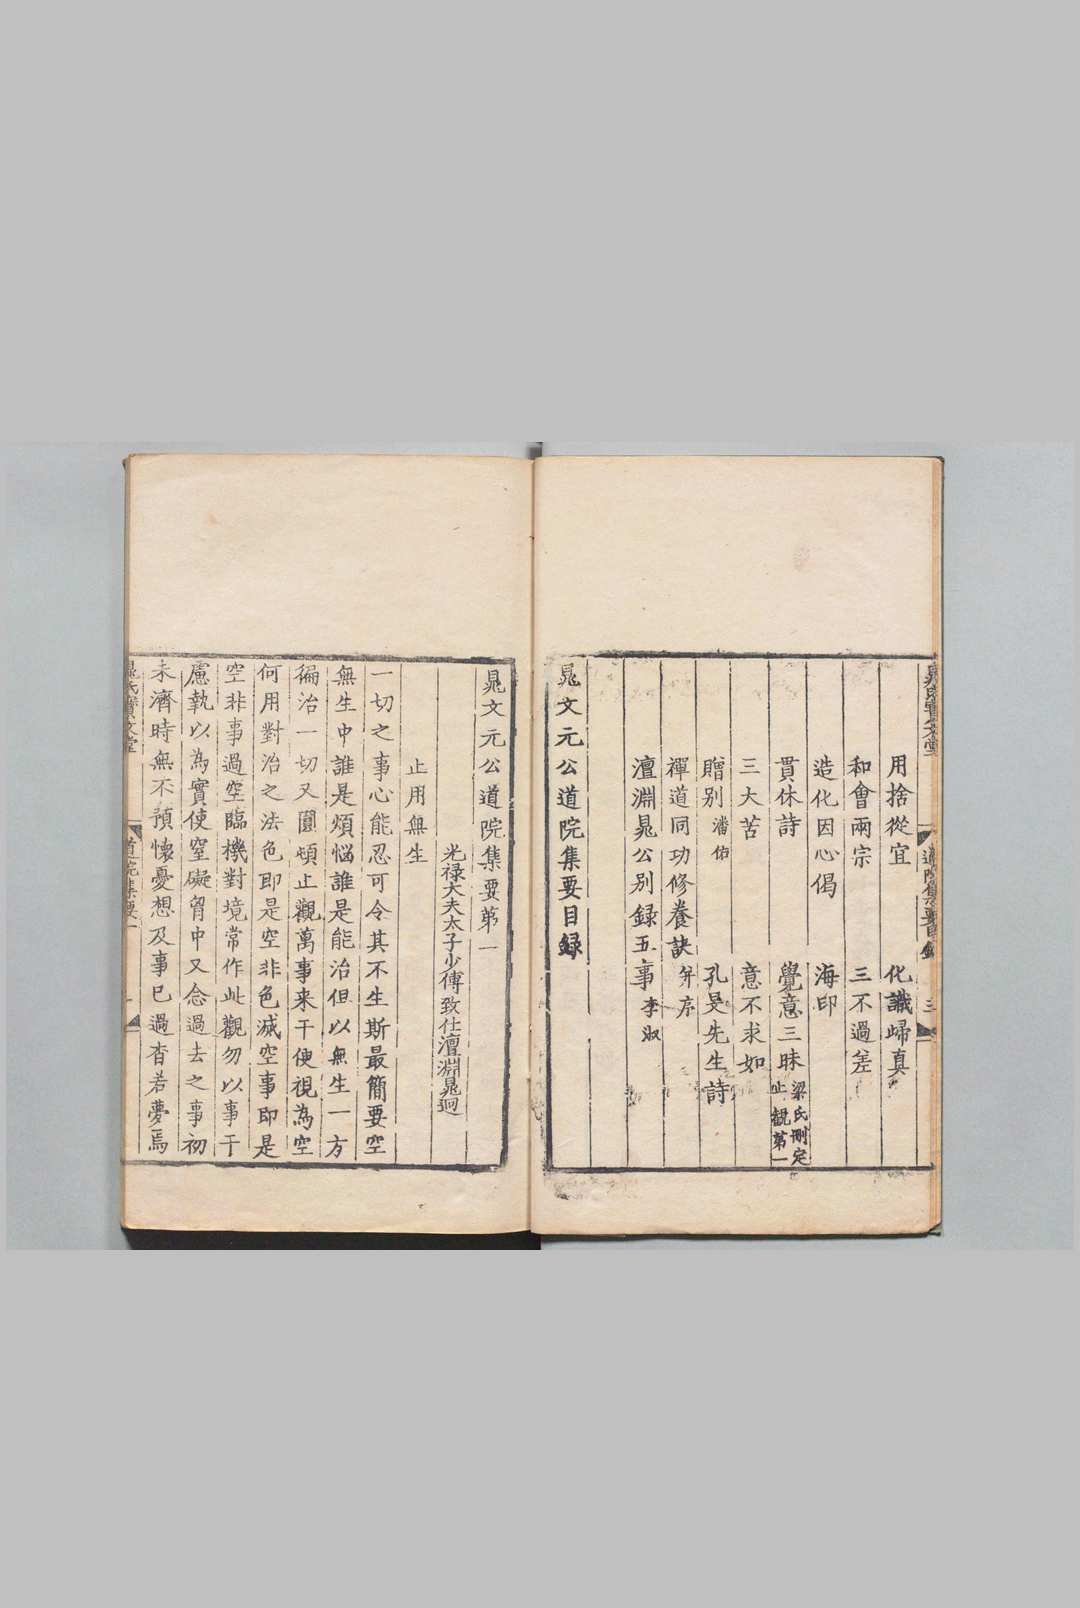 用捨從宜　化識歸真
和會兩宗　三不過差
造化因心偈　海印
貫休詩　覺意三昧 梁氏刪定止觀第一
三大苦　意不求如
贈别 潘佑　孔旻先生詩
禪道同功修養訣 并序
澶淵晁公别録五事 李淑
晁文元公道院集要目録
晁文元公道院集要第一
光禄大夫太子少傅致仕澶淵晁迥
止用無生
一切之事心能忍可令其不生斯最簡要空
無生中誰是煩惱誰是能治但以無生一方
徧治一切又圓頓止觀萬事来干便視為空
何用對治之法色即是空非色滅空事即是
空非事過空臨機對境常作此觀勿以事干
慮執以為實使窒礙胷中又念過去之事初
未濟時無不預懐憂想及事已過杳若夢焉
晁氏寳文堂
道院集要一